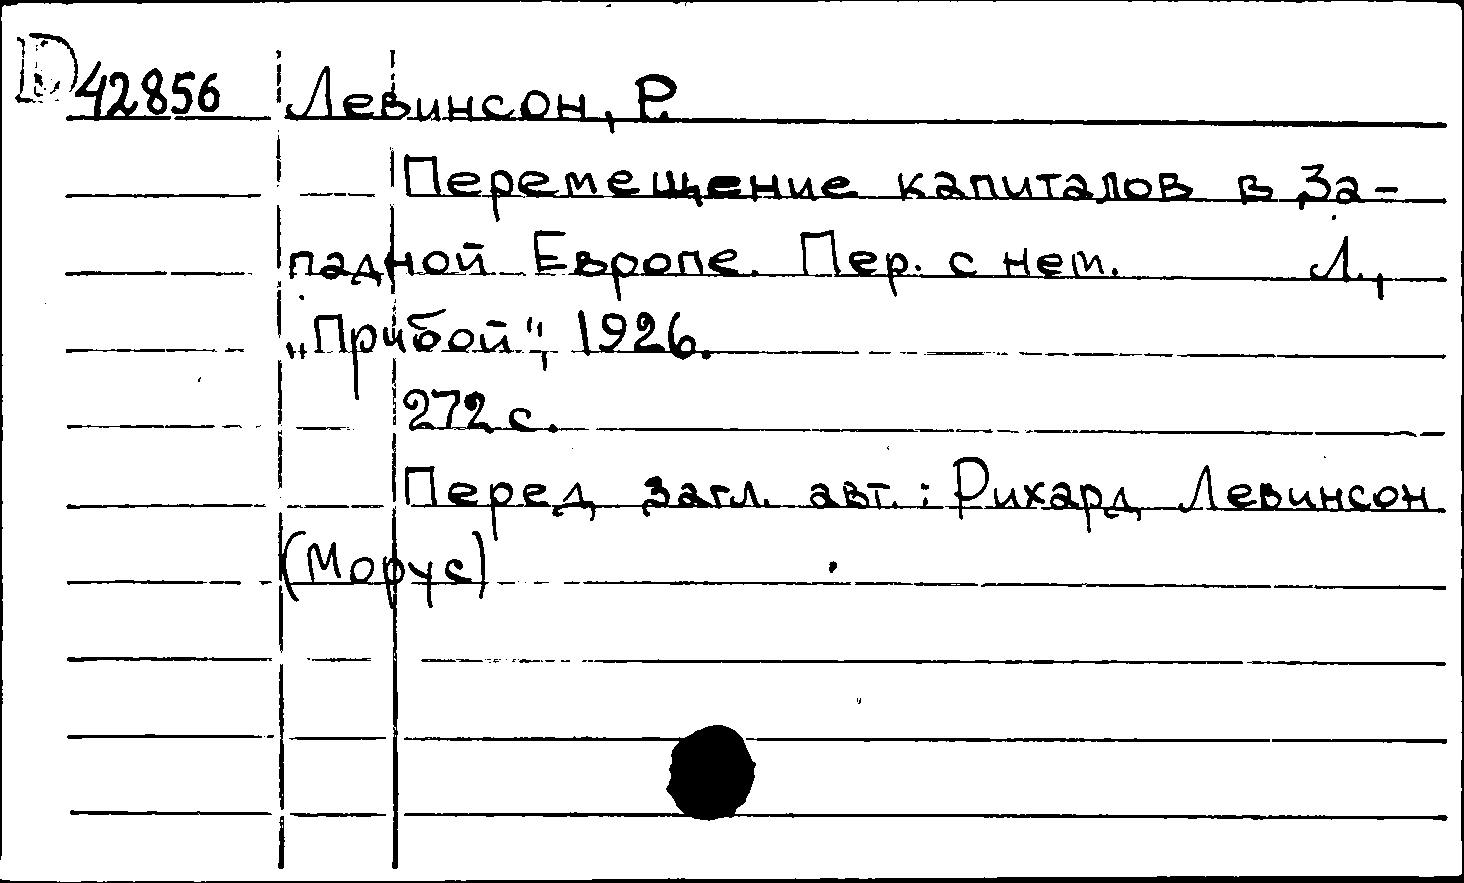 D 42856 Левинсон, Р.
Перемещение капиталов в За-
падной Европе. Пер. с нем. Л.,
„Прибой“, 1926.
272 с.
Перед загл. авт.: Рихард Левинсон
(Морус)